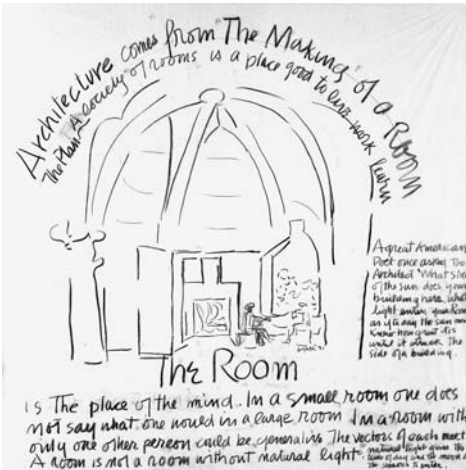 Architecture comes from The Making of a Room
The Plan – A society of rooms is a place good to live work learn
A great American
Poet once asked The
Architect "What slice
of the sun does your
building have. What
light enters your Room
as if to say the sun never
knew how great it is
until it struck The
side of a building.
The Room
is The place of the mind. In a small room one does
not say what one would in a large room In a room with
only one other person could be generative The vectors of each meet
A room is not a room without natural light
natural light gives The
time of day and
The seasons to enter.